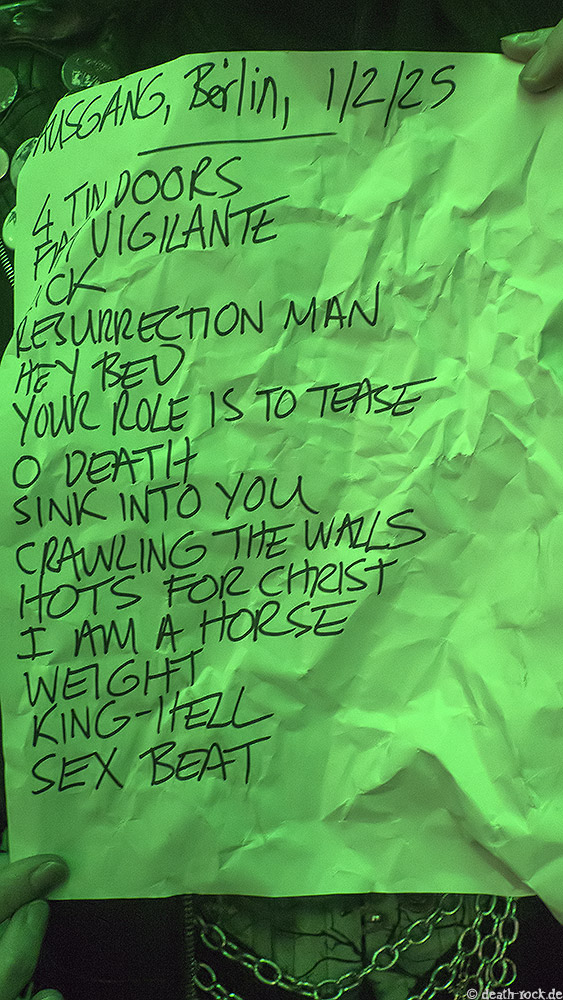 AUSGANG, Berlin, 1/2/25
4 TIN DOORS
VIGILANTE
RESURRECTION MAN
HEY BED
YOUR ROLE IS TO TEASE
O DEATH
SINK INTO YOU
CRAWLING THE WALLS
HOTS FOR CHRIST
I AM A HORSE
WEIGHT
KING-HELL
SEX BEAT
© death-rock.de